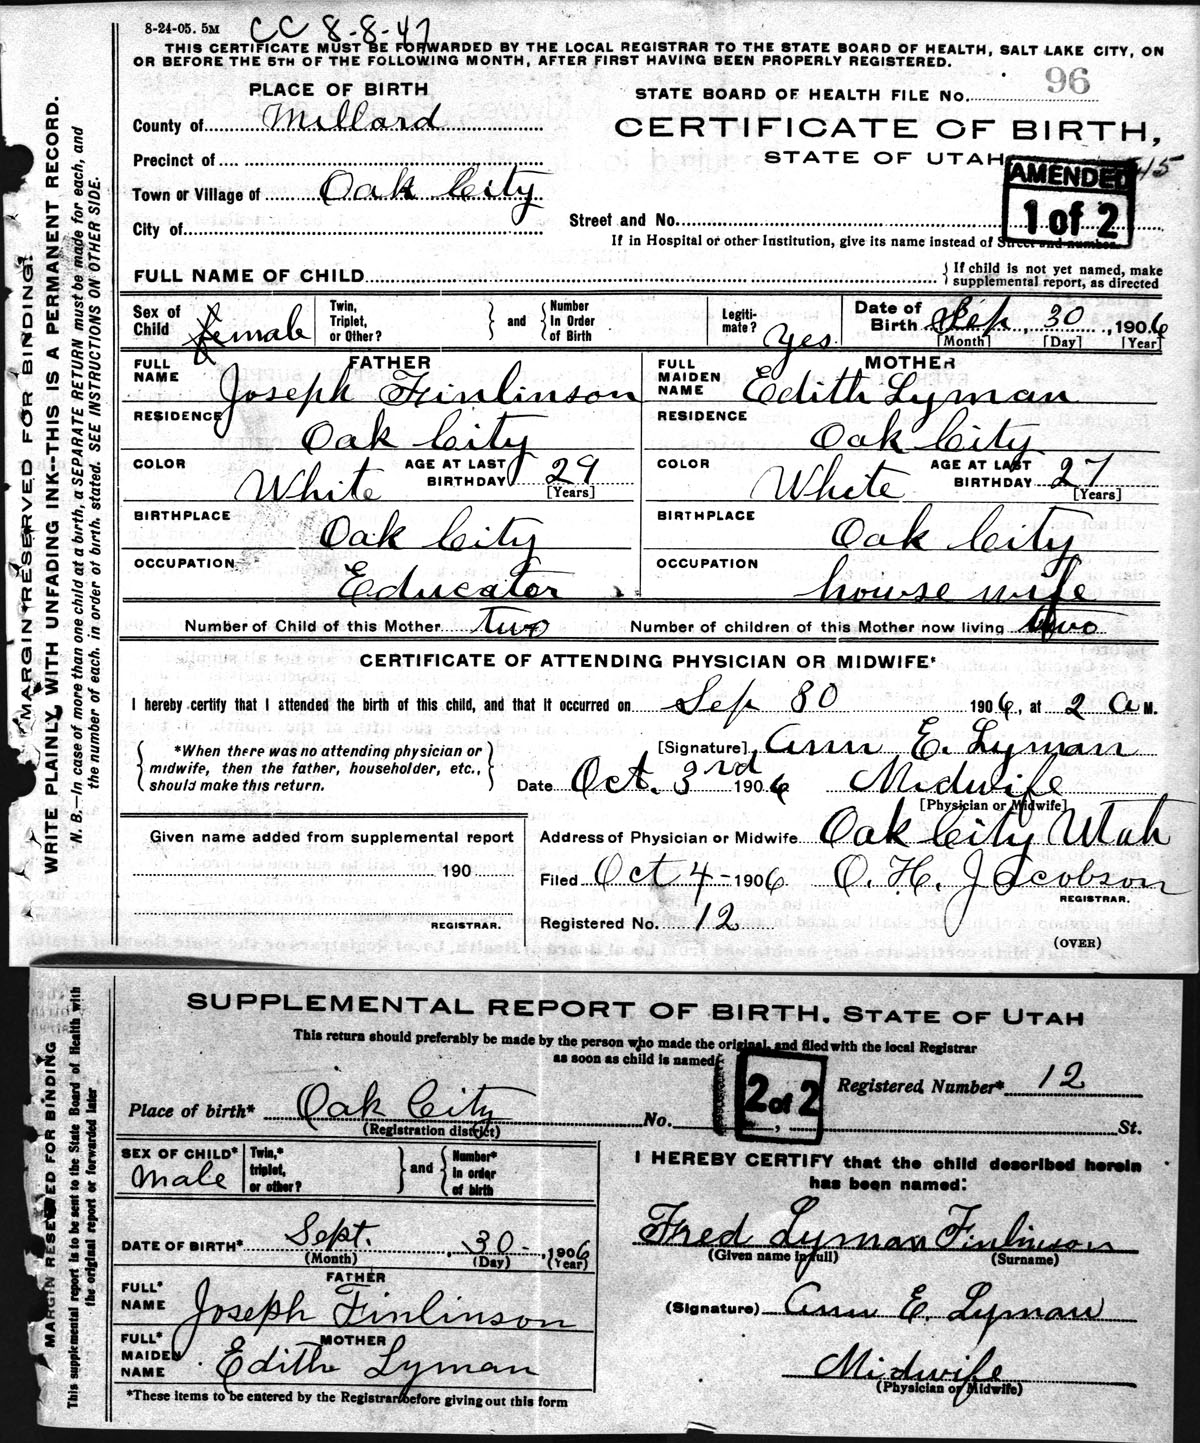 8-24-05. 5M CC 8-8-47
THIS CERTIFICATE MUST BE FORWARDED BY THE LOCAL REGISTRAR TO THE STATE BOARD OF HEALTH, SALT LAKE CITY, ON
OR BEFORE THE 5TH OF THE FOLLOWING MONTH, AFTER FIRST HAVING BEEN PROPERLY REGISTERED.
MARGIN RESERVED FOR BINDING!
WRITE PLAINLY, WITH UNFADING INK--THIS IS A PERMANENT RECORD.
N. B.—In case of more than one child at a birth, a SEPARATE RETURN must be made for each, and
the number of each, in order of birth, stated. SEE INSTRUCTIONS ON OTHER SIDE.
PLACE OF BIRTH
County of Millard
Precinct of
Town or Village of Oak City
City of
STATE BOARD OF HEALTH FILE No. 96
CERTIFICATE OF BIRTH,
STATE OF UTAH
AMENDED
1 of 2
Street and No.
If in Hospital or other Institution, give its name instead of Street and number.
FULL NAME OF CHILD { If child is not yet named, make
supplemental report, as directed
Sex of Child female
Twin, Triplet, or Other? } and { Number In Order of Birth
Legiti-mate? Yes
Date of Birth Sep, 30, 1906
[Month] [Day] [Year]
FATHER
FULL NAME Joseph Finlinson
RESIDENCE Oak City
COLOR White AGE AT LAST BIRTHDAY 29
[Years]
BIRTHPLACE Oak City
OCCUPATION Educator
MOTHER
FULL MAIDEN NAME Edith Lyman
RESIDENCE Oak City
COLOR White AGE AT LAST BIRTHDAY 27
[Years]
BIRTHPLACE Oak City
OCCUPATION house wife
Number of Child of this Mother two Number of children of this Mother now living two
CERTIFICATE OF ATTENDING PHYSICIAN OR MIDWIFE*
I hereby certify that I attended the birth of this child, and that it occurred on Sep 30 1906, at 2 a M.
{ *When there was no attending physician or
midwife, then the father, householder, etc.,
should make this return. }
[Signature] Ann E. Lyman
Date Oct. 3rd 1906 Midwife
[Physician or Midwife]
Given name added from supplemental report
190
REGISTRAR.
Address of Physician or Midwife Oak City Utah
Filed Oct 4- 1906 O. H. Jacobson
REGISTRAR.
Registered No. 12
(OVER)
MARGIN RESERVED FOR BINDING
This supplemental report is to be sent to the State Board of Health with
the original report or forwarded later
SUPPLEMENTAL REPORT OF BIRTH, STATE OF UTAH
This return should preferably be made by the person who made the original, and filed with the local Registrar
as soon as child is named
2 of 2
Registered Number* 12
Place of birth* Oak City No. , St.
(Registration district)
SEX OF CHILD* Male
Twin,* triplet, or other? } and { Number* In order of birth
DATE OF BIRTH* Sept. , 30-, 1906
(Month) (Day) (Year)
FATHER
FULL* NAME Joseph Finlinson
MOTHER
FULL* MAIDEN NAME Edith Lyman
*These items to be entered by the Registrar before giving out this form
I HEREBY CERTIFY that the child described herein
has been named:
Fred Lyman Finlinson
(Given name in full) (Surname)
(Signature) Ann E. Lyman
Midwife
(Physician or Midwife)